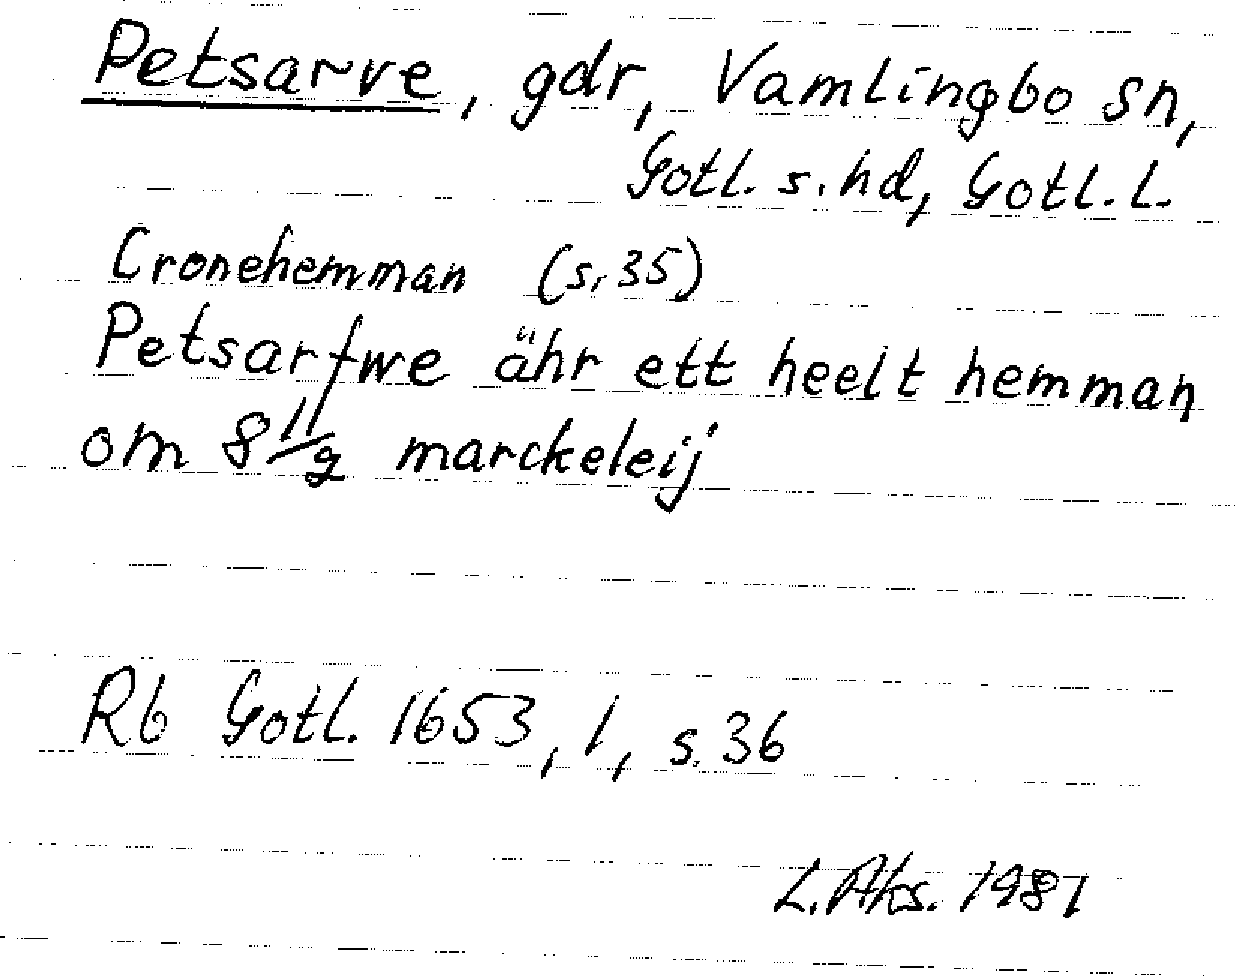 Petsarve, gdr, Vamlingbo sn,
Gotl. s. hd, Gotl. L.
Cronehemman (s. 35)
Petsarfwe ähr ett heelt hemman
om 8 11/12 marckeleij
Rb Gotl. 1653, 1, s. 36
L. Aks. 1981